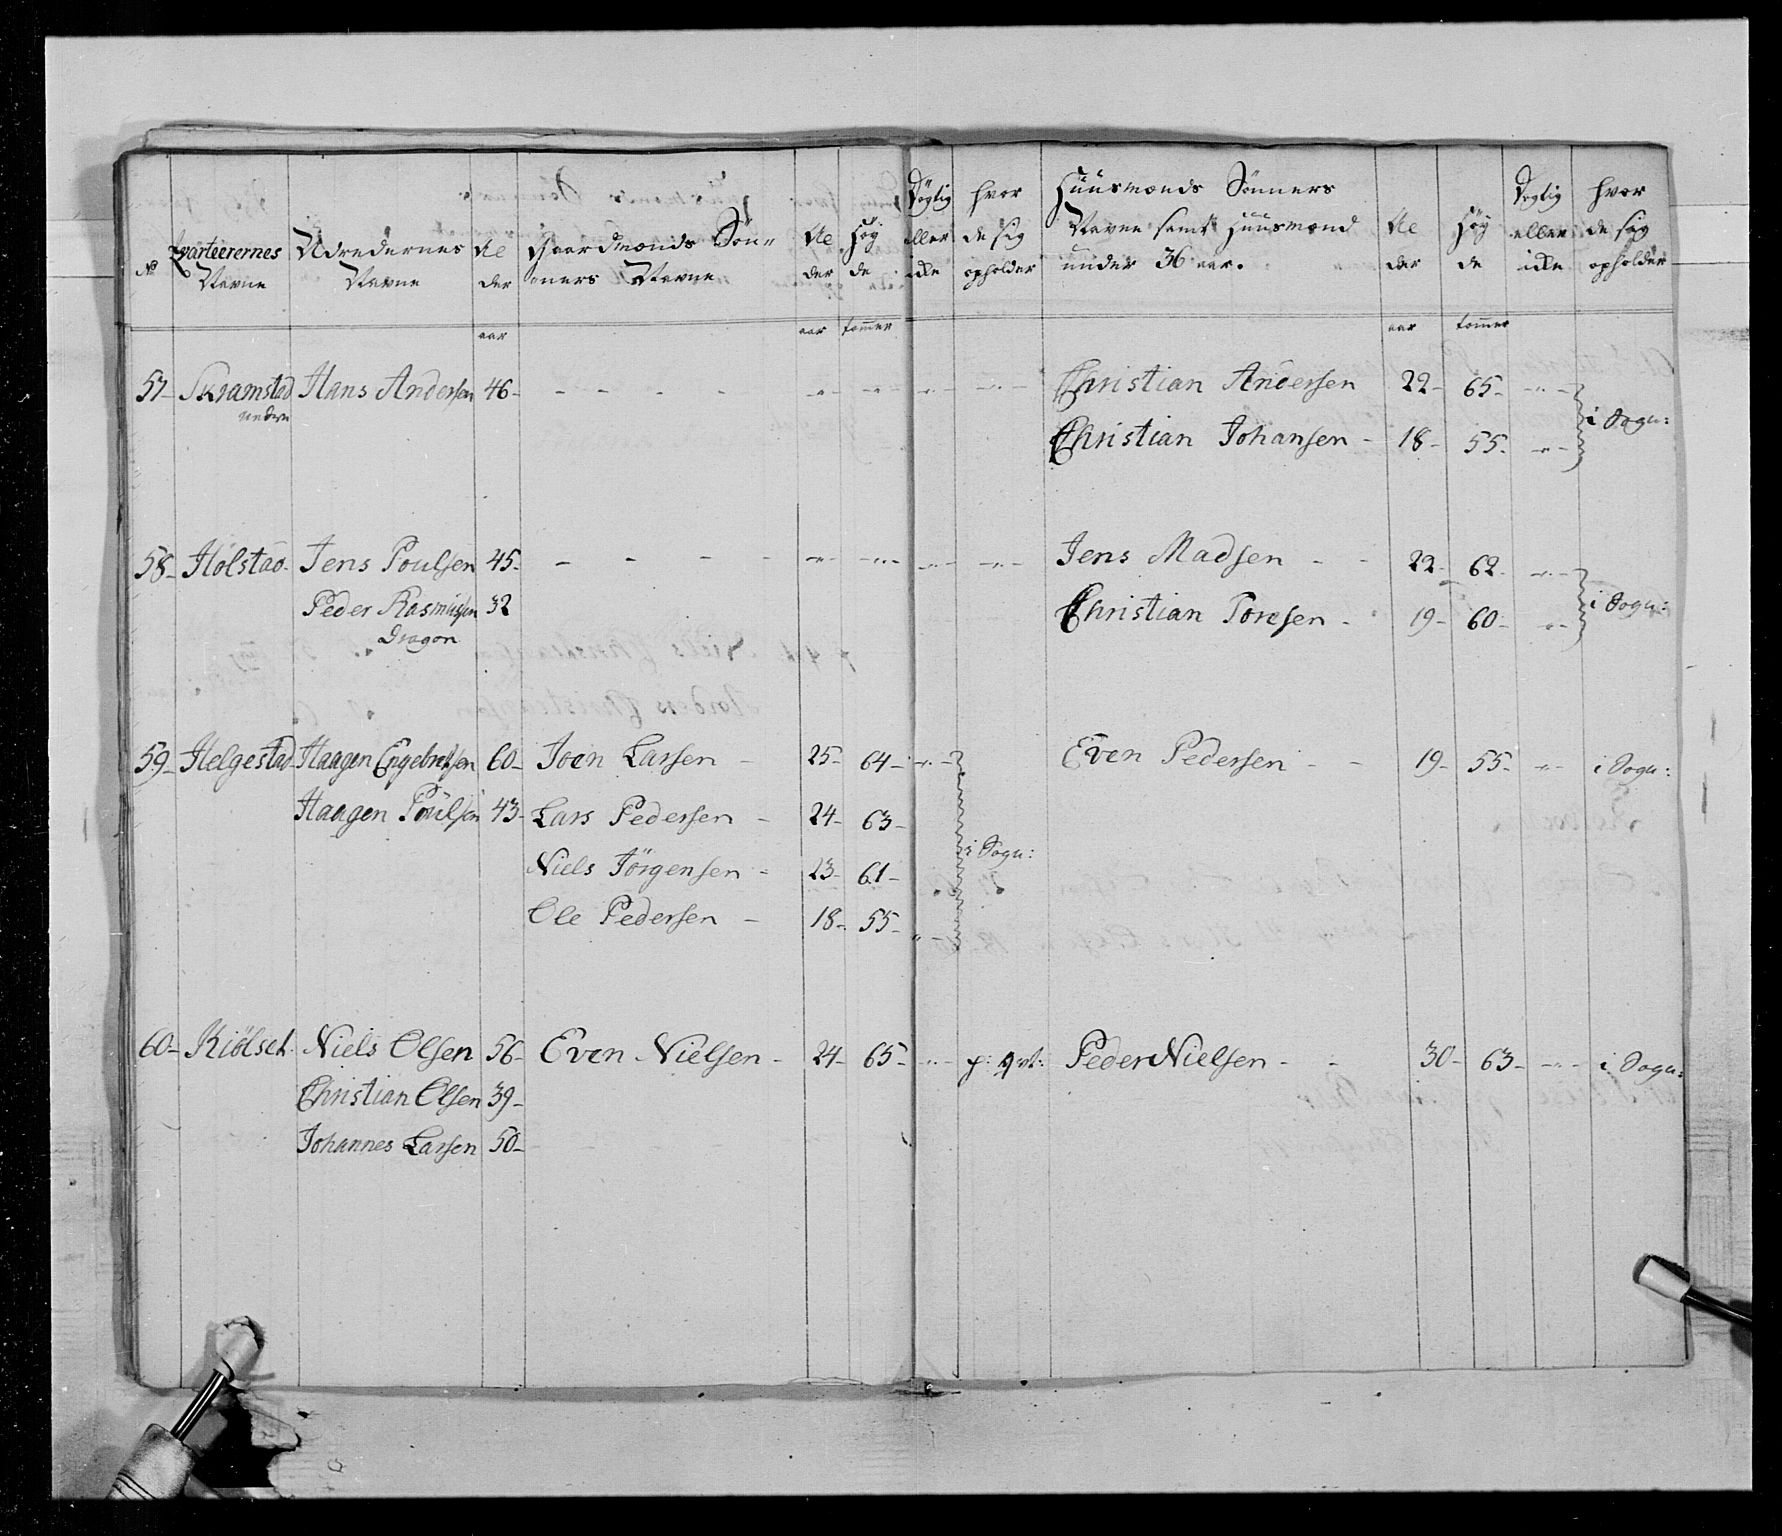 No | Qvarteerernes Navne | Udredernes Navne | Alder | Gaardmænds Sönners Navne | Alder | Høyde | Dygtig eller icke | hvor de sig opholder | Huusmænds Sönners Navne samt Huusmænd under 36 aar. | Alder | Høyde | Dygtig eller icke | hvor de sig opholder
aar | aar | tommer | aar | tommer
57 - Skramstad | Hans Andersen | 46 - | Christian Andersen | 22 - | 65 - | i Sogn:
nedre | Christian Johansen - | 18 - | 55 -
58 - Holstad - | Jens Poulsen | 45 - | Jens Madsen - - | 22 - | 62 - | i Sogn:
Peder Rasmusen | 32 | Christian Toresen - | 19 - | 60 -
Dragon
59 - Helgestad | Haagen Engebretsen | 60 - | Joen Larsen - | 25 - | 64 - | i Sogn: | Even Pedersen - - | 19 - | 55 - | i Sogn:
Haagen Poulsen | 43 - | Lars Pedersen - | 24 - | 63 -
Niels Jörgensen - | 23 - | 61 -
Ole Pedersen - | 18 - | 55 -
60 - Kiölset | Niels Olsen | 56 - | Even Nielsen - | 24 - | 65 - | Peder Nielsen - - | 30 - | 63 - | i Sogn:
Christian Olsen | 39 -
Johannes Larsen | 50 -